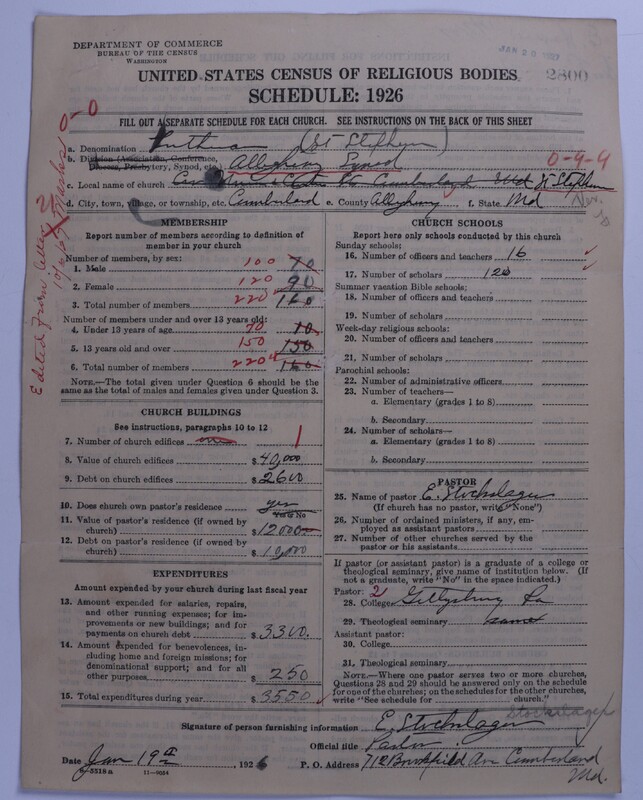 DEPARTMENT OF COMMERCE
BUREAU OF THE CENSUS
WASHINGTON
UNITED STATES CENSUS OF RELIGIOUS BODIES
2800
SCHEDULE: 1926
FILL OUT A SEPARATE SCHEDULE FOR EACH CHURCH. SEE INSTRUCTIONS ON THE BACK OF THIS SHEET
0-0
Edited from letter
a. Denomination Lutheran (St Stephen)
b. Division (Association, Conference,
Diocese, Presbytery, Synod, etc.) Alleghany Synod
0-9-9
c. Local name of church Cumberland Md St Stephen
d. City, town, village, or township, etc. Cumberland e. County Alleghany f. State Md
MEMBERSHIP
Report number of members according to definition of
member in your church
Number of members, by sex:
1. Male 100 70
2. Female 120 90
3. Total number of members 220 160
Number of members under and over 13 years old:
4. Under 13 years of age 70 10
5. 13 years old and over 150 150
6. Total number of members 220 160
NOTE.—The total given under Question 6 should be the
same as the total of males and females given under Question 3.
CHURCH BUILDINGS
See instructions, paragraphs 10 to 12
7. Number of church edifices one 1
8. Value of church edifices $ 40,000
9. Debt on church edifices $ 2600
10. Does church own pastor's residence? yes
Yes or No
11. Value of pastor's residence (if owned by
church) $ 12000
12. Debt on pastor's residence (if owned by
church) $ 10,000
EXPENDITURES
Amount expended by your church during last fiscal year
13. Amount expended for salaries, repairs,
and other running expense; for im-
provements or new buildings; and for
payments on church debt $ 3300
14. Amount expended for benevolences, in-
cluding home and foreign missions; for
denominational support; and for all
other purposes $ 250
15. Total expenditures during year $ 3550
CHURCH SCHOOLS
Report here only schools conducted by this church
Sunday schools:
16. Number of officers and teachers 16
17. Number of scholars 120
Summer vacation Bible schools:
18. Number of officers and teachers
19. Number of scholars
Week-day religious schools:
20. Number of officers and teachers
21. Number of scholars
Parochial schools:
22. Number of administrative officers
23. Number of teachers—
a. Elementary (grades 1 to 8)
b. Secondary
24. Number of scholars—
a. Elementary (grades 1 to 8)
b. Secondary
PASTOR
25. Name of pastor E. Stockslager
(If church has no pastor, write "None")
26. Number of ordained ministers, if any, em-
ployed as assistant pastors
27. Number of other churches served by the
pastor or his assistants
If pastor (or assistant pastor) is a graduate of a college or
theological seminary, give name of institution below. (If
not a graduate, write "No" in the space indicated.)
Pastor: 2
28. College Gettysburg Pa
29. Theological seminary same
Assistant pastor:
30. College
31. Theological seminary
NOTE.—Where one pastor serves two or more churches,
Questions 28 and 29 should be answered only on the schedule
for one of the churches; on the schedules for the other churches,
write "See schedule for church."
Stockslager
Signature of person furnishing information E. Stockslager
Official title Pastor
Date Jan 19th 1926 P. O. Address 712 Brookfield Av Cumberland
Md.
8-5519a 11—9084